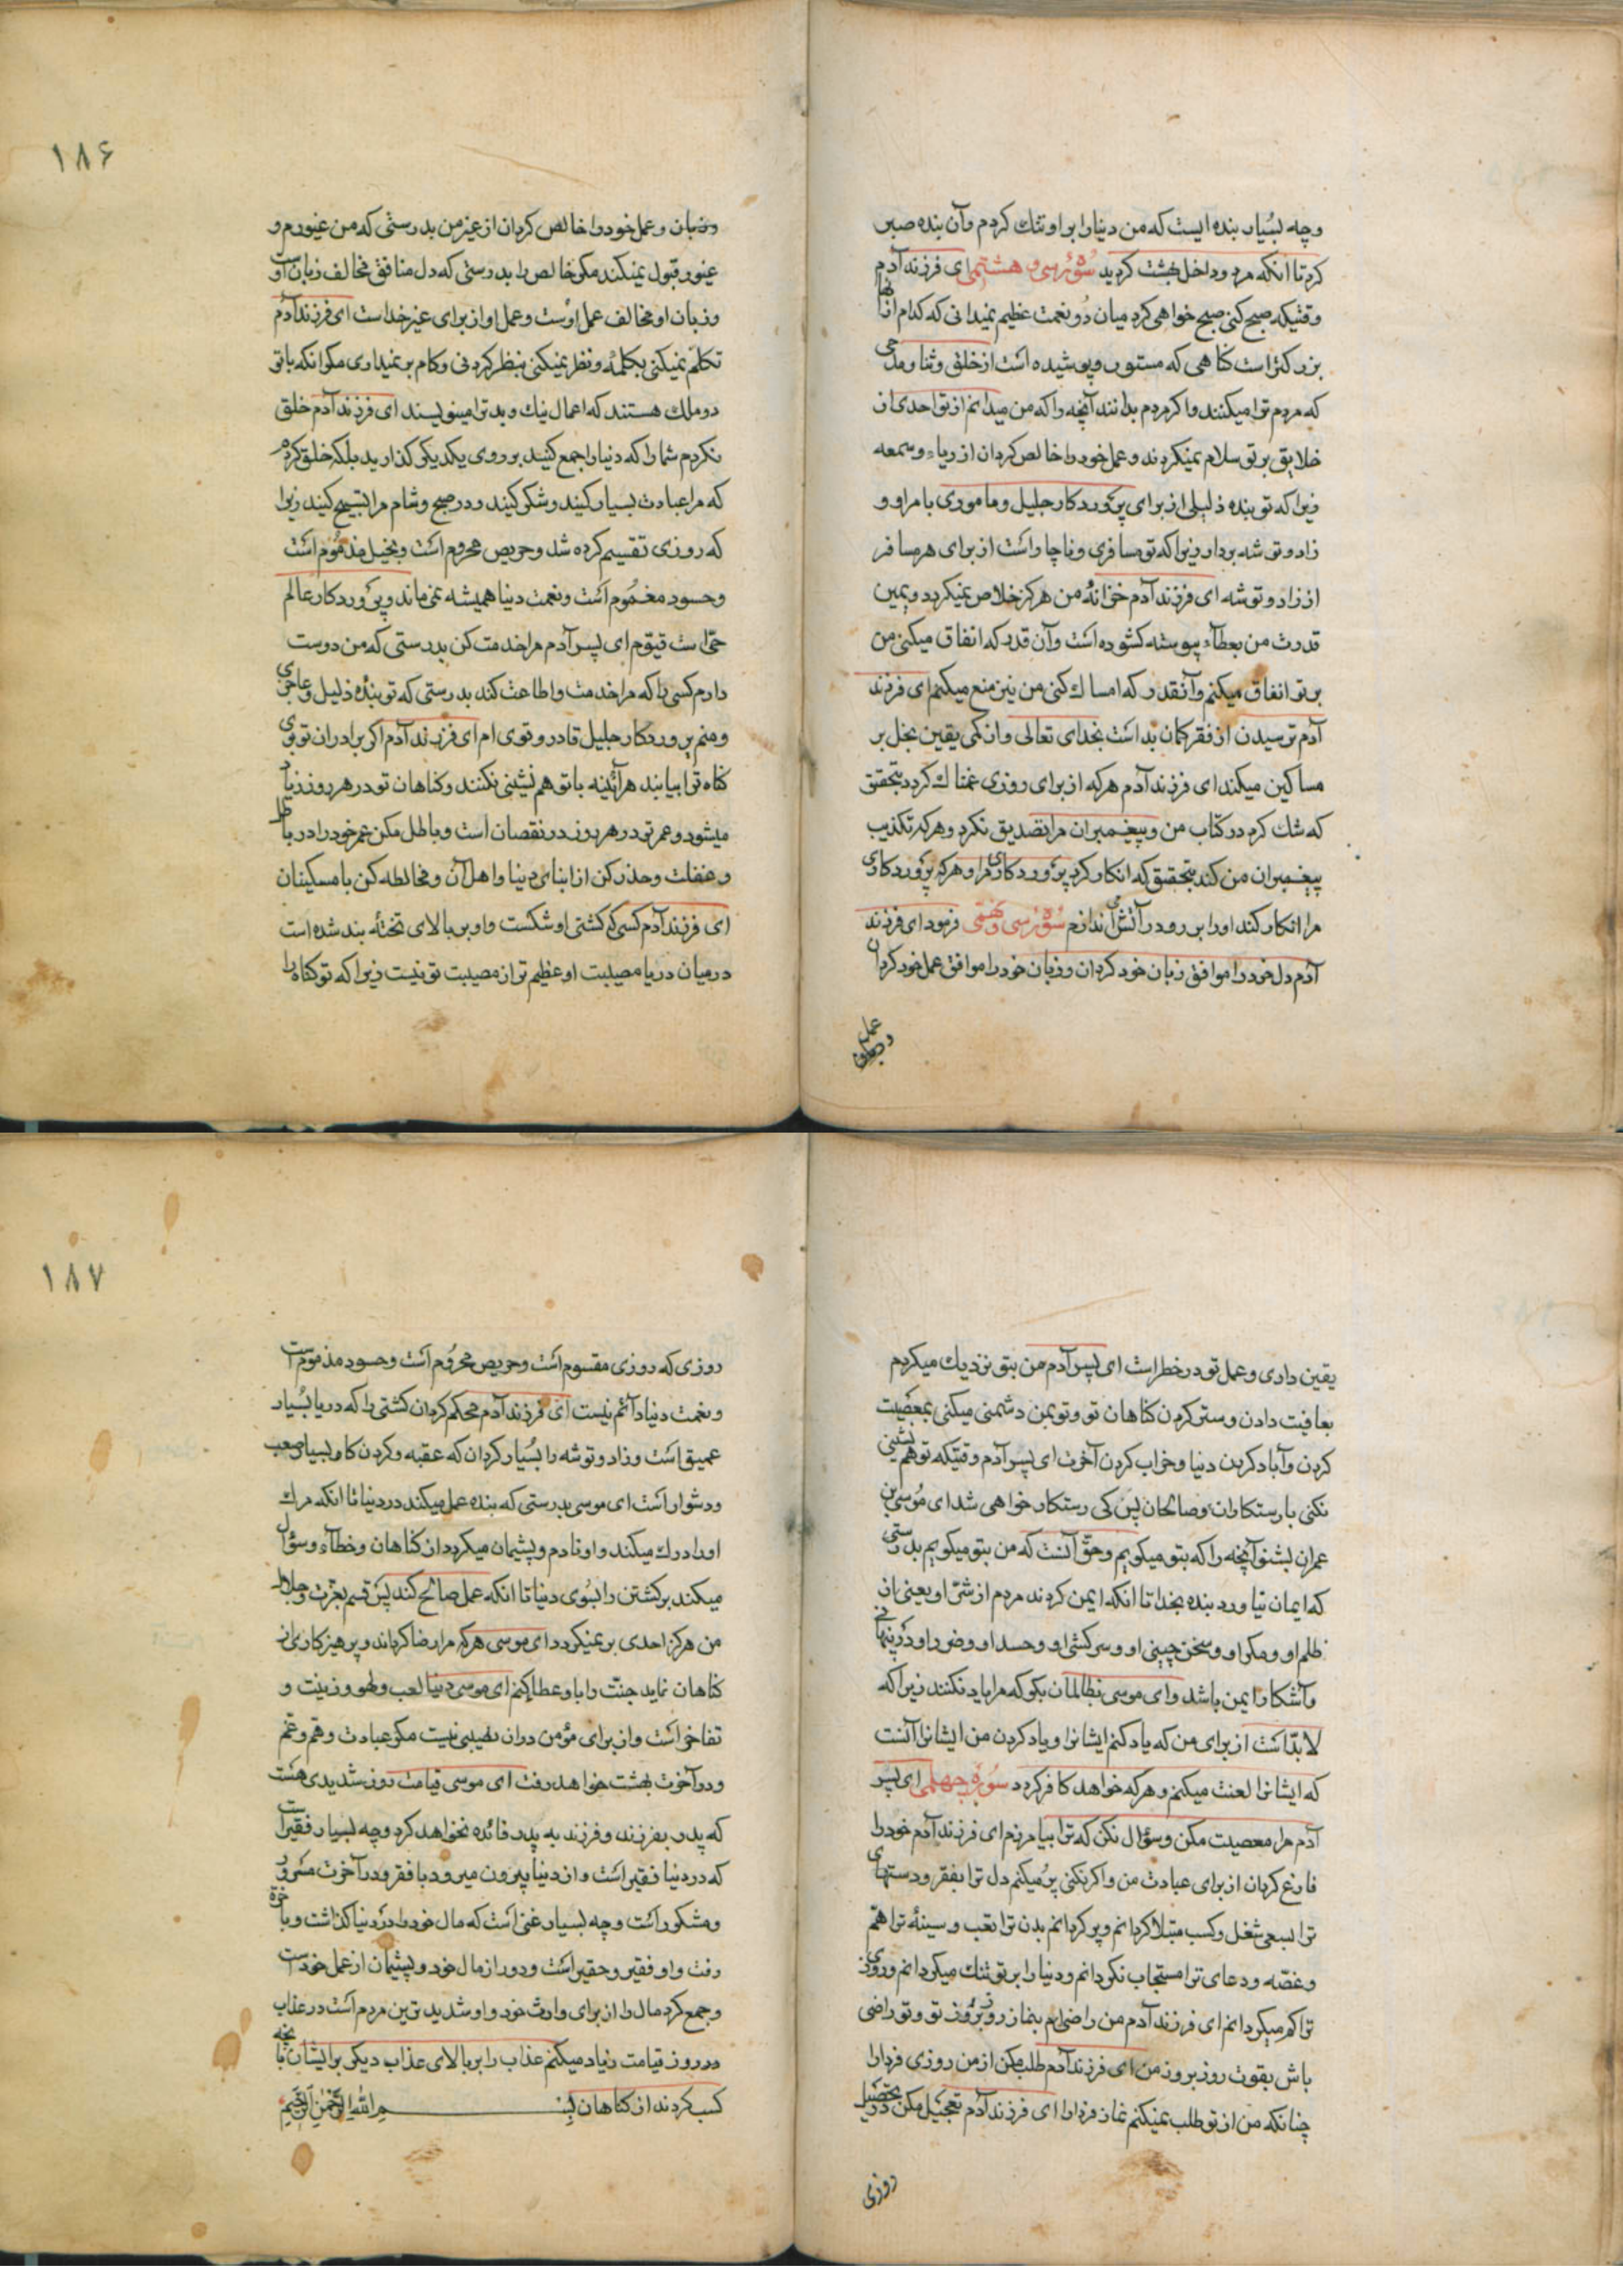 وچه بسیار بنده ایست که من دنیا را بر او تنک کردم وآن بنده صبر
کرد تا انکه مرد وداخل بهشت کردید سُوۀ سی و هشتم ای فرزند آدم
وقتیکه صبح کنی صبح خواهی کرد میان دو نعمت عظیم نمیدانی که کدام از آنها
بزرکتر است کناهی که مستور وپوشیده است از خلق وثنا ومدحی
که مردم ترا میکنند واکر مردم بدانند آنچه را که من میدانم از تو احدی از
خلایق بر تو سلام نمیکردند وعمل خود را خالص کردان از ریاء وسمعه
زیرا که تو بنده ذلیلی از برای پروردکار جلیل وماموری بامر او و
زاد وتوشه بردار زیرا که تو مسافری وناچار است از برای هر مسافر
از زاد وتوشه ای فرزند آدم خزانۀ من هرکز خلاص نمیکردد ویمین
قدرت من بعطاء پیوسته کشوده است وآن قدر که انفاق میکنی من
بر تو انفاق میکنم وآنقدر که امساک کنی من نیز منع میکنم ای فرزند
آدم ترسیدن از فقر کمان بد است بخدای تعالی واز کمی یقین بخل بر
مساکین میکند ای فرزند آدم هرکه از برای روزی غمناک کردد بتحقق
که شک کرد در کتاب من وپیغمبران مرا تصدیق نکرد وهرکه تکذیب
پیغمبران من کند بتحقیق که انکار کرد پروردکاری مرا وهرکه پروردکاری
مرا انکار کند او را برو در آتش اندازم سُوۀ سی ونهم فرمود ای فرزند
آدم دل خود را موافق زبان خود کردان وزبان خود را موافق عمل خود کردان
۱۸۶
وزبان وعمل خود را خالص کردان از غیر من بدرستی که من غیورم و
غیور قبول نمیکند مکر خالص را بدرستی که دل منافق مخالف زبان اوست
وزبان او مخالف عمل اوست وعمل او از برای غیر خداست ای فرزند آدم
تکلم نمیکنی بکلمۀ ونظر نمیکنی بنظر کردنی وکام بر نمیداری مکر انکه با تو
دو ملک هستند که اعمال نیک وبد ترا مینویسند ای فرزند آدم خلق
نکردم شما را که دنیا را جمع کنید بر روی یکدیکر کذارید بلکه خلق کردم
که مرا عبادت بسیار کنید وشکر کنید ودر صبح وشام مرا تسبیح کنید زیرا
که روزی تقسیم کرده شد وحریص محروم است وبخیل مذموم است
وحسود مغموم است ونعمت دنیا همیشه نمی ماند وپروردکار عالم
حی است قیوم ای پسر آدم مرا خدمت کن بدرستی که من دوست
دارم کسی را که مرا خدمت واطاعت کند بدرستی که تو بندۀ ذلیل وعاجزی
ومنم پروردکار جلیل قادر وقوی ام ای فرزند آدم اکر برادران تو بوی
کناه ترا بیابند هرآینه با تو هم نشینی نکنند وکناهان تو در هر روز زیاد
میشود وعمر تو در هر روز در نقصان است وباطل مکن عمر خود را در باطل
وغفلت وحذر کن از ابنای دنیا واهل آن ومخالطه کن با مسکینان
ای فرزند آدم کسی که کشتی او شکست واو بر بالای تختۀ بند شده است
درمیان دریا مصیبت او عظیم تر از مصیبت تو نیست زیرا که تو کناه را
یقین داری وعمل تو در خطر است ای پسر آدم من بتو نزدیک میکردم
بعافیت دادن وستر کردن کناهان تو وتو بمن دشمنی میکنی بمعصیت
کردن وآباد کردن دنیا وخراب کردن آخرت ای پسر آدم وقتیکه تو هم نشینی
نکنی با رستکاران وصالحان پس کی رستکار خواهی شد ای موسی بن
عمران بشنو آنچه را که بتو میکویم وحق آنست که من بتو میکویم بدرستی
که ایمان نیاورد بنده بخدا تا انکه ایمن کردند مردم از شر او یعنی از
ظلم او ومکر او وسخن چینی او وسرکشی او وحسد او وضرر او در پنهانی
وآشکارا ایمن باشد وای موسی بظالمان بکو که مرا یاد نکنند زیرا که
لا بد است از برای من که یاد کنم ایشانرا ویاد کردن من ایشانرا آنست
که ایشانرا لعنت میکنم وهرکه خواهد کافر کردد سُوره چهلم ای پسر
آدم مرا معصیت مکن وسؤال نکن که ترا بیامرزم ای فرزند آدم خود را
فارغ کردان از برای عبادت من واکر نکنی پر میکنم دل ترا بفقر ودستهای
ترا بسعی شغل وکسب مبتلا کردانم وپر کردانم بدن ترا بتعب وسینۀ ترا بهم
وغصه ودعای ترا مستجاب نکردانم ودنیا را بر تو تنک میکردانم وروزی
ترا کم میکردانم ای فرزند آدم من راضیم بنماز روز بروز تو وتو راضی
باش بقوت روز بروز من ای فرزند آدم طلب مکن از من روزی فردا را
چنانکه من از تو طلب نمیکنم نماز فردا را ای فرزند آدم تعجیل مکن در تحصیل
روزی
۱۸۷
روزی که روزی مقسوم است وحریص محروم است وحسود مذموم است
ونعمت دنیا دائم نیست ای فرزند آدم محکم کردان کشتی را که دریا بسیار
عمیق است وزاد وتوشه را بسیار کردان که عقبه وکردن کاه بسیار صعب
ودشوار است ای موسی بدرستی که بنده عمل میکند در دنیا تا انکه مرک
او را درک میکند واو نادم وپشیمان میکردد از کناهان وخطاء وسؤال
میکند برکشتن را بسوی دنیا تا انکه عمل صالح کند پس قسم بعزت وجلال
من هرکز احدی بر نمیکردد ای موسی هرکه مرا رضا کرداند وپرهیزکاری از
کناهان نماید جنت را باو عطا کنم ای موسی دنیا لعب ولهو وزینت و
تفاخر است واز برای مؤمن در ان نصیبی نیست مکر عبادت وهم وغم
ودر آخرت بهشت خواهد رفت ای موسی قیامت روز شدیدی هست
که پدر بفرزند وفرزند به پدر فائده نخواهد کرد وچه بسیار فقیر است
که در دنیا فقیر است واز دنیا بیرون میرود با فقر ودر آخرت مسرور
ومشکور است وچه بسیار غنی است که مال خود را در دنیا کذاشت وباخرة
رفت واو فقیر وحقیر است ودور از مال خود وپشیمان از عمل خود است
وجمع کرد مال را از برای وارث خود واو شدید ترین مردم است در عذاب
در روز قیامت زیاد میکنم عذاب را بر بالای عذاب دیکر بر ایشان بانچه
کسب کردند از کناهان بسم الله الرحمن الرحیم